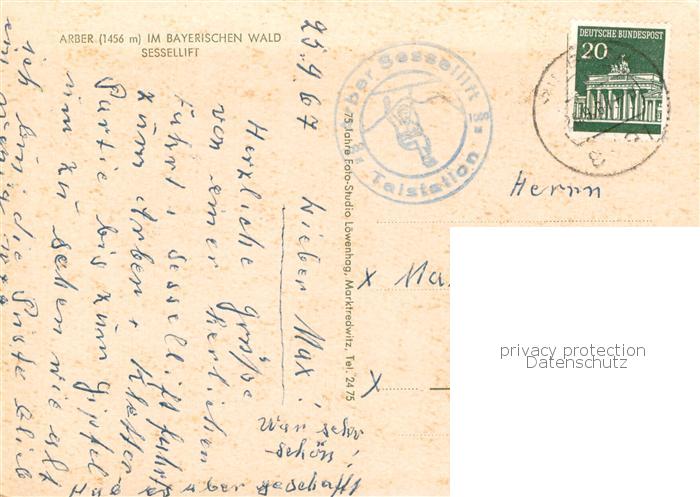 ARBER (1456 m) IM BAYERISCHEN WALD
SESSELLIFT
25.9.67
Lieber Max!
Herzliche Grüsse
von einer herrlichen
Fahrt, Sessellift fahrt
zum Arber, Kletter
Partie bis zum Gipfel
um zu sehen wie alt
ich bin, die Puste blieb
War sehr
schön!
Hab es aber geschafft
75 Jahre Foto-Studio Löwenhag, Marktredwitz, Tel. 24 75
Arber Sessellift
Talstation
DEUTSCHE BUNDESPOST
20
Herrn
x Ma
x
privacy protection
Datenschutz